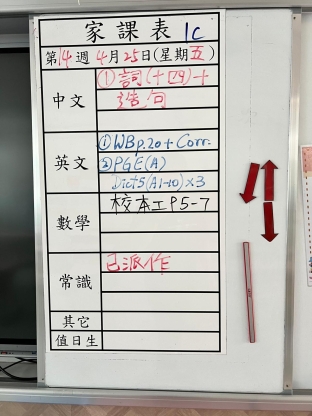 家課表 1C
第14週 4月25日(星期五)
中文
①詞(十四)+
造句
英文
①WB p.20 + Corr.
②PGE(A)
Dict 5 (A1-10) × 3
數學
校本工P5-7
常識
已派作
其它
值日生